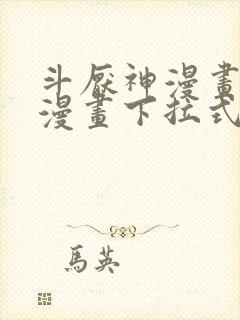 斗厭神漫畫
漫畫下拉式
馬英